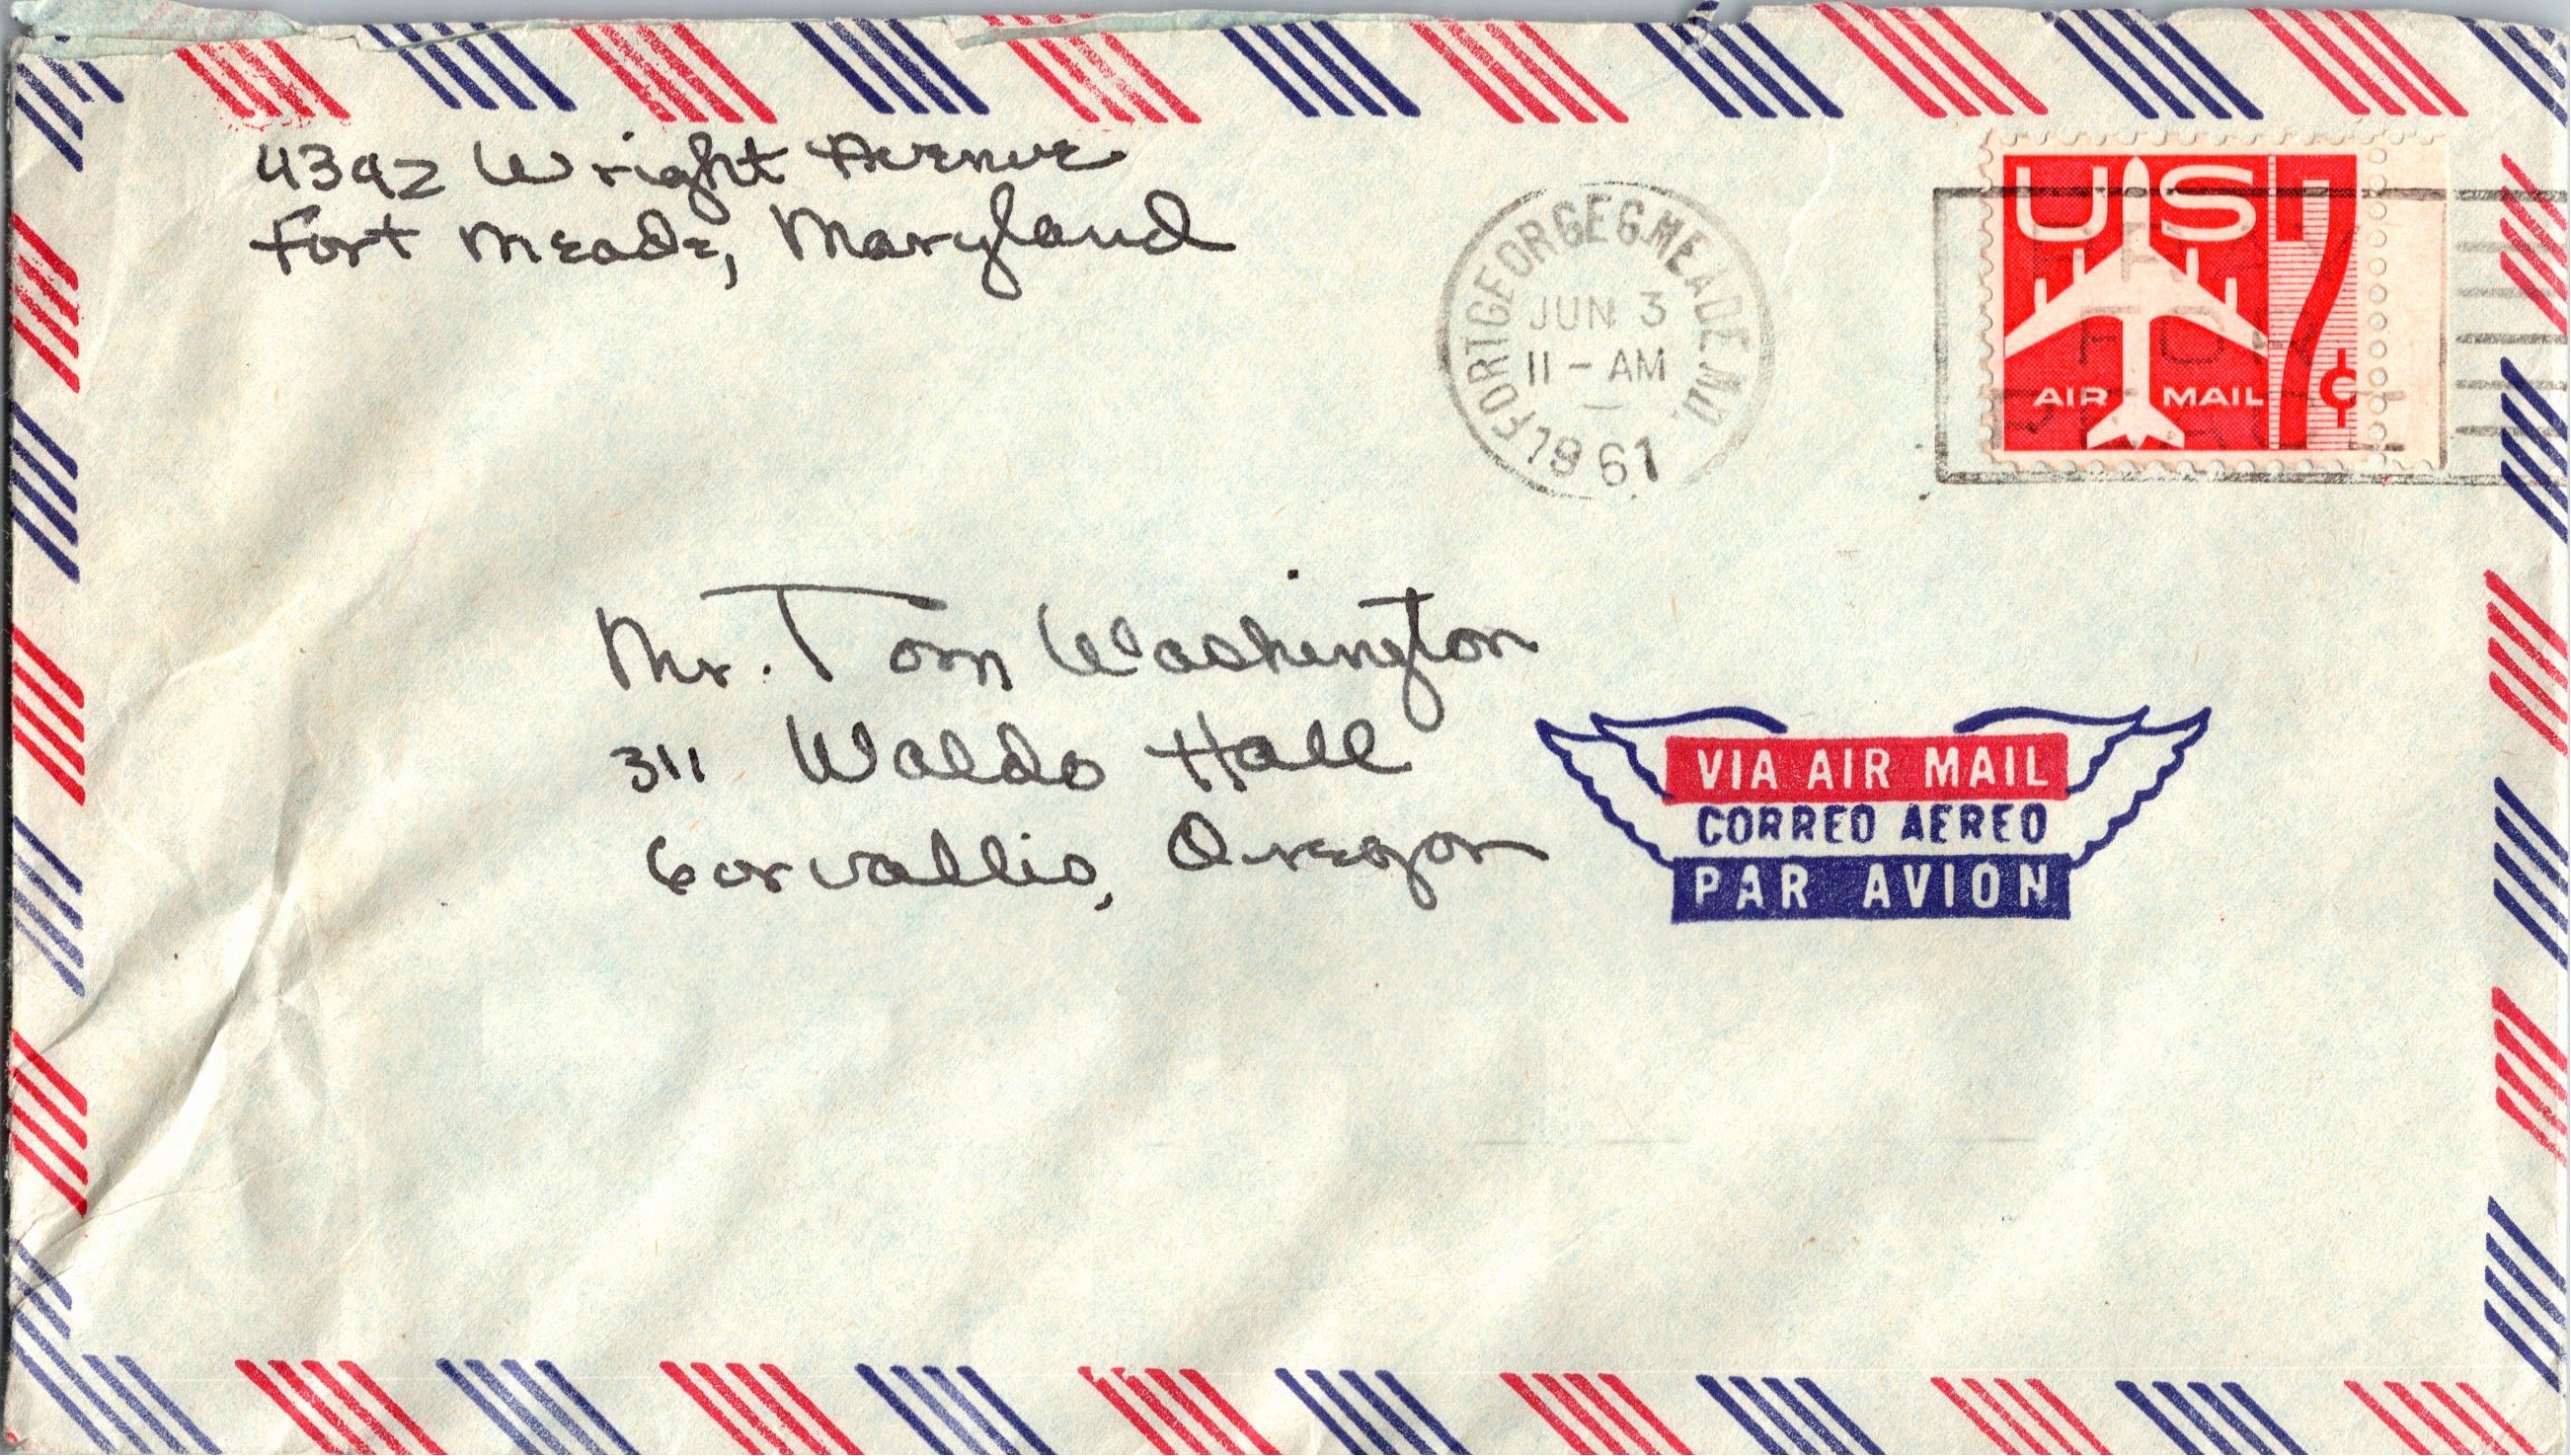 4392 Wright Avenue
Fort Meade, Maryland
FORT GEORGE G. MEADE, MD.
JUN 3
11 - AM
1961
US 7¢
AIR MAIL
PRAY
FOR
PEACE
Mr. Tom Washington
311 Waldo Hall
Corvallis, Oregon
VIA AIR MAIL
CORREO AEREO
PAR AVION